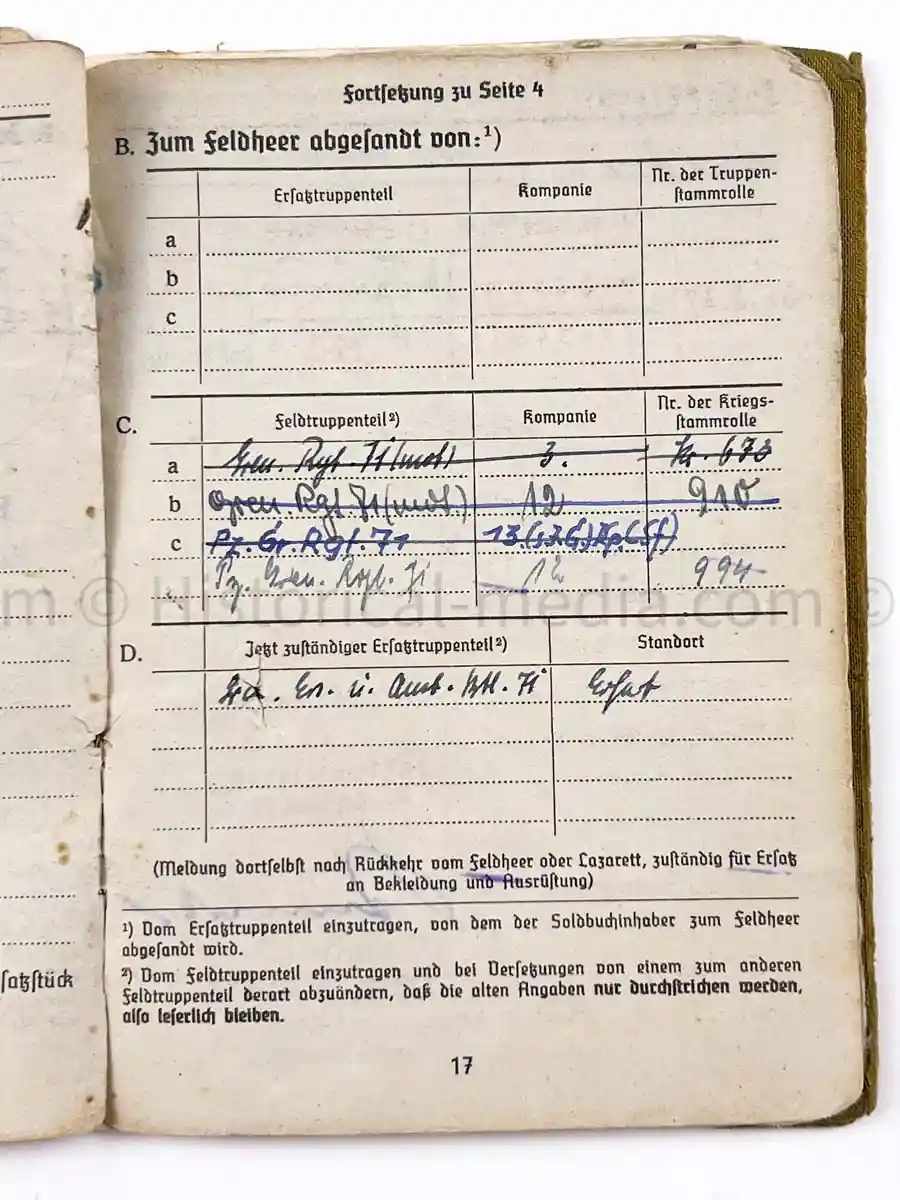 Fortsetzung zu Seite 4
B. Zum Feldheer abgesandt von:¹)
Ersatztruppenteil Kompanie Nr. der Truppen-
stammrolle
a
b
c
C. Feldtruppenteil²) Kompanie Nr. der Kriegs-
stammrolle
a Gren. Rgt. 71 (mot) 3. 673
b Gren. Rgt 71 (mot.) 12 910
c Pz. Gr. Rgt. 71 13.
Pz. Gren. Rgt. 71 12 994
m © Historical-media.com ©
D. Jetzt zuständiger Ersatztruppenteil²) Standort
Ers. u. Ausb. Btl. 71 Erfurt
(Meldung dortselbst nach Rückkehr vom Feldheer oder Lazarett, zuständig für Ersatz
an Bekleidung und Ausrüstung)
¹) Vom Ersatztruppenteil einzutragen, von dem der Soldbuchinhaber zum Feldheer
abgesandt wird.
²) Vom Feldtruppenteil einzutragen und bei Versetzungen von einem zum anderen
Feldtruppenteil derart abzuändern, daß die alten Angaben nur durchstrichen werden,
also leserlich bleiben.
17
satzstück